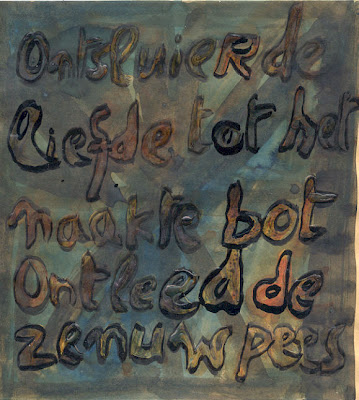 Ontsluierde
liefde tot het
naakte bot
Ontleedde
zenuwpees